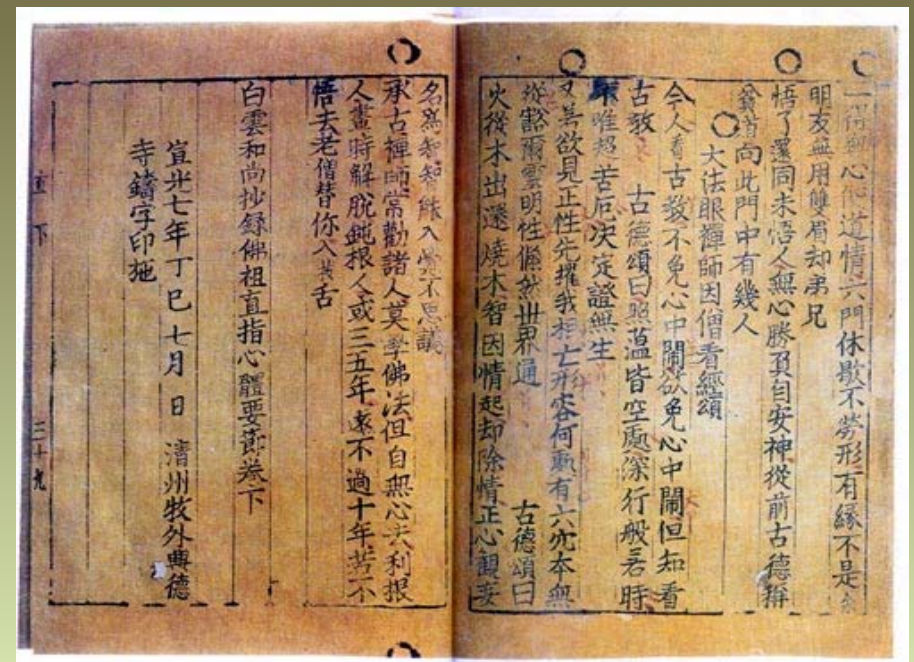 一得無心便道情六門休歇不勞形有緣不是余
朋友無用雙眉却弟兄
悟了還同未悟人無心勝負自安神從前古德稱
貧道向此門中有幾人
大法眼禪師因僧看經頌
今人看古教不免心中鬧欲免心中鬧但知看
古教 古德頌曰照蘊皆空處深行般若時
不唯超苦厄決定證無生
又 欲見正性先摧我相亡形容何處有六穴本無
從豁爾雲明性翛然世界通 古德頌曰
火從木出還燒木智因情起却除情正心觀妄
名爲智智能入 不思議
承古禪師常勸諸人莫學佛法但自無心去利根
人晝時解脫鈍根人或三五年遠不過十年若不
悟去老僧替你入 舌
白雲和尚抄錄佛祖直指心體要節卷下
宣光七年丁巳七月 日 清州牧外興德
寺鑄字印施
直下 三十九